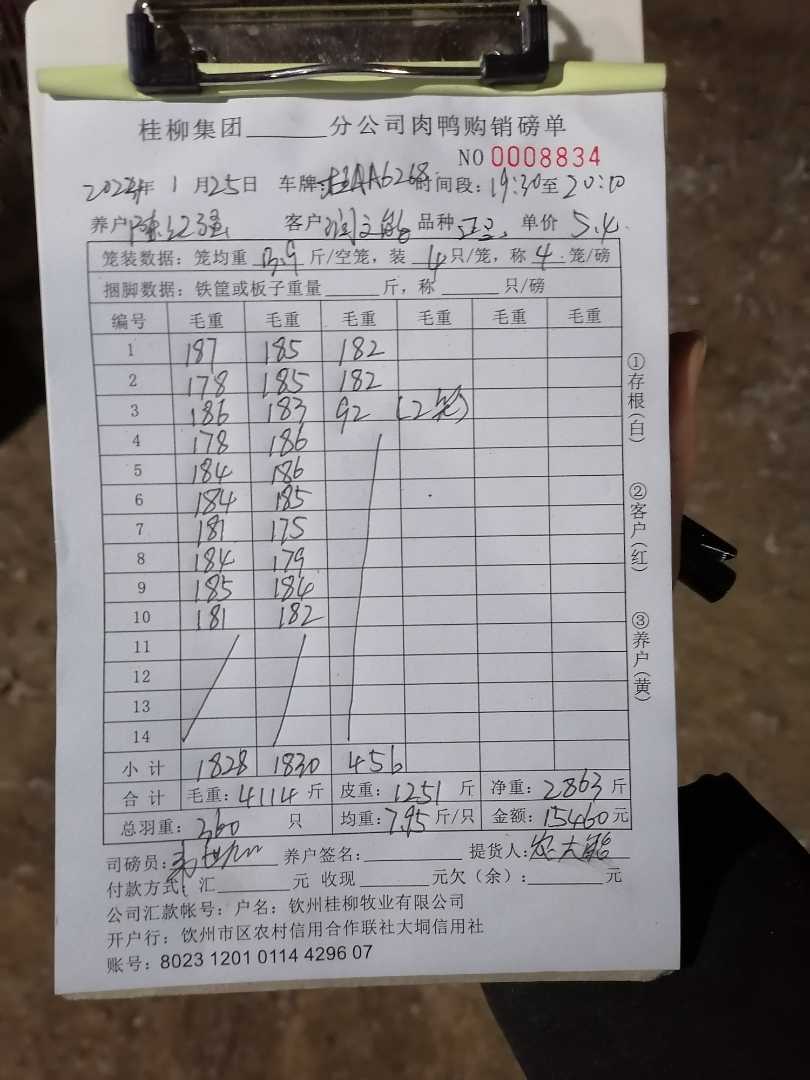 桂柳集团______分公司肉鸭购销磅单
NO 0008834
2024年 1月25日 车牌:桂AA6268 时间段:19:30至20:10
养户 陈 强 客户 润文能 品种 单价 5.4
笼装数据:笼均重 13.9 斤/空笼,装 4 只/笼,称 4 笼/磅
捆脚数据:铁筐或板子重量______斤,称______只/磅
编号 毛重 毛重 毛重 毛重 毛重 毛重
1 187 185 182
2 178 185 182
3 186 183 92 (2笼)
4 178 186
5 184 186
6 184 185
7 181 175
8 184 179
9 185 184
10 181 182
11
12
13
14
小计 1828 1830 456
合计 毛重:4114斤 皮重:1251斤 净重:2863斤
总羽重:360只 均重:7.95斤/只 金额:15460元
司磅员: 养户签名:______ 提货人:
付款方式:汇______元 收现______元欠(余):______元
公司汇款帐号:户名:钦州桂柳牧业有限公司
开户行:钦州市区农村信用合作联社大垌信用社
账号:8023 1201 0114 4296 07
①存根(白)
②客户(红)
③养户(黄)